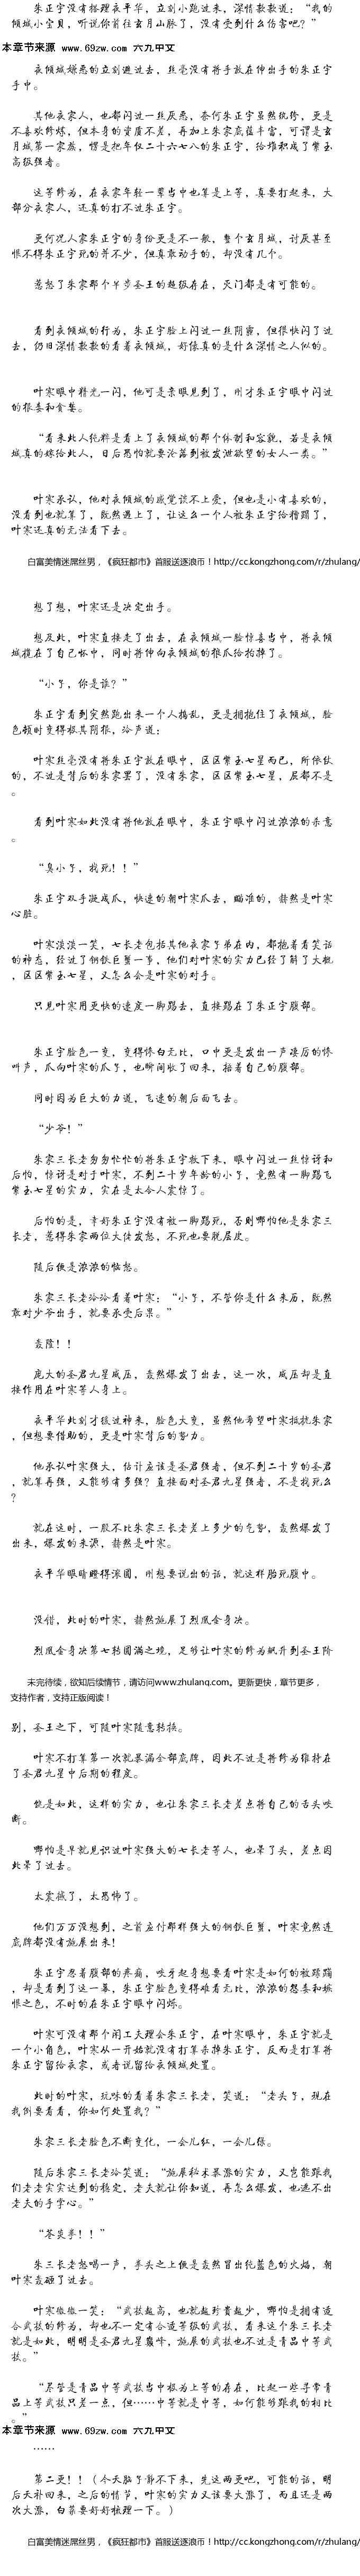 朱正宇没有搭理夜平华，立刻小跑过来，深情款款道：“我的
倾城小宝贝，听说你前往玄月山脉了，没有受到什么伤害吧？”
本章节来源 www.69zw.com 六九中文
夜倾城嫌恶的立刻避过去，丝毫没有将手放在伸出手的朱正宇
手中。
其他夜家人，也都闪过一丝厌恶，奈何朱正宇虽然纨绔，更是
不喜欢修炼，但本身的资质不差，再加上朱家底蕴丰富，可谓是玄
月城第一家族，愣是把年仅二十六七八的朱正宇，给堆积成了紫玉
高级强者。
这等修为，在夜家年轻一辈当中也算是上等，真要打起来，大
部分夜家人，还真的打不过朱正宇。
更何况人家朱正宇的身份更是不一般，整个玄月城，讨厌甚至
恨不得朱正宇死的并不少，但真敢动手的，却没有几个。
惹怒了朱家那个半步圣王的超级存在，灭门都是有可能的。
看到夜倾城的行为，朱正宇脸上闪过一丝阴霾，但很快闪了过
去，仍旧深情款款的看着夜倾城，好像真的是什么深情之人似的。
叶寒眼中精光一闪，他可是亲眼见到了，刚才朱正宇眼中闪过
的狠毒和贪婪。
“看来此人纯粹是看上了夜倾城的那个体制和容貌，若是夜倾
城真的嫁给此人，日后恐怕就要沦落到被发泄欲望的女人一类。”
叶寒承认，他对夜倾城的感觉谈不上爱，但也是小有喜欢的，
没看到也就算了，既然遇上了，让这么一个人被朱正宇给糟蹋了，
叶寒还真的无法看下去。
白富美情迷屌丝男，《疯狂都市》首服送逐浪币！http://cc.kongzhong.com/r/zhulang/
想了想，叶寒还是决定出手。
想及此，叶寒直接走了出去，在夜倾城一脸惊喜当中，将夜倾
城揽在了自己怀中，同时将伸向夜倾城的狼爪给拍掉了。
“小子，你是谁？”
朱正宇看到突然跑出来一个人捣乱，更是拥抱住了夜倾城，脸
色顿时变得极其阴狠，冷声道：
叶寒丝毫没有将朱正宇放在眼中，区区紫玉七星而已，所依仗
的，不过是背后的朱家罢了，没有朱家，区区紫玉七星，屁都不是
。
看到叶寒如此没有将他放在眼中，朱正宇眼中闪过浓浓的杀意
。
“臭小子，找死！！”
朱正宇双手凝成爪，快速的朝叶寒爪去，瞄准的，赫然是叶寒
心脏。
叶寒淡淡一笑，七长老包括其他夜家子弟在内，都抱着看笑话
的神态，经过了钢铁巨蟹一事，他们对叶寒的实力已经了解了大概
，区区紫玉七星，又怎么会是叶寒的对手。
只见叶寒用更快的速度一脚踢去，直接踢在了朱正宇腹部。
朱正宇脸色一变，变得惨白无比，口中更是发出一声凄厉的惨
叫声，爪向叶寒的爪子，也瞬间收了回来，捂着自己的腹部。
同时因为巨大的力道，飞速的朝后面飞去。
“少爷！”
朱家三长老匆匆忙忙的将朱正宇救下来，眼中闪过一丝惊讶和
后怕，惊讶是对于叶寒，不到二十岁年龄的小子，竟然有一脚踢飞
紫玉七星的实力，实在是太令人震惊了。
后怕的是，幸好朱正宇没有被一脚踢死，否则哪怕他是朱家三
长老，惹得朱家两位大佬发怒，不死也要脱层皮。
随后便是浓浓的恼怒。
朱家三长老冷冷看着叶寒：“小子，不管你是什么来历，既然
敢对少爷出手，就要承受后果。”
轰隆！！
庞大的圣君九星威压，轰然爆发了出去，这一次，威压却是直
接作用在叶寒等人身上。
夜平华此刻才缓过神来，脸色大变，虽然他希望叶寒抵抗朱家
，但想要借助的，更是叶寒背后的势力。
他承认叶寒强大，估计应该是圣君强者，但不到二十岁的圣君
，就算再强，又能够有多强？直接面对圣君九星强者，不是找死么
？
就在这时，一股不比朱家三长老差上多少的气势，轰然爆发了
出来，爆发的来源，赫然是叶寒。
夜平华眼睛瞪得滚圆，刚想要说出的话，就这样胎死腹中。
没错，此时的叶寒，赫然施展了烈凰金身决。
烈凰金身决第七转圆满之境，足够让叶寒的修为飙升到圣王阶
未完待续，欲知后续情节，请访问www.zhulang.com。更新更快，章节更多，
支持作者，支持正版阅读！
别，圣王之下，可随叶寒随意转换。
叶寒不打算第一次就暴漏全部底牌，因此不过是将修为维持在
了圣君九星中后期的程度。
饶是如此，这样的实力，也让朱家三长老差点将自己的舌头咬
断。
哪怕是早就见识过叶寒强大的七长老等人，也晕了头，差点因
此晕了过去。
太震撼了，太恐怖了。
他们万万没想到，之前应付那样强大的钢铁巨蟹，叶寒竟然连
底牌都没有施展出来！
朱正宇忍着腹部的疼痛，咬牙起身想要看叶寒是如何的被蹂躏
，却是看到了这一幕，朱正宇脸色变得难看无比，浓浓的怨毒和嫉
恨之色，不时的在朱正宇眼中闪烁。
叶寒可没有那个闲工夫理会朱正宇，在叶寒眼中，朱正宇就是
一个小角色，叶寒从一开始就没有打算杀掉朱正宇，反而是打算将
朱正宇留给夜家，或者说留给夜倾城处置。
此时的叶寒，玩味的看着朱家三长老，笑道：“老头子，现在
我倒要看看，你如何处置我？”
朱家三长老脸色不断变化，一会儿红，一会儿绿。
随后朱家三长老冷笑道：“施展秘术暴涨的实力，又岂能跟我
们老老实实达到的稳定，老夫就让你知道，再怎么爆发，也逃不出
老夫的手掌心。”
“苍炎拳！！”
朱三长老怒喝一声，拳头之上便是轰然冒出纯蓝色的火焰，朝
叶寒轰砸了过去。
叶寒微微一笑：“武技越高，也就越珍贵越少，哪怕是拥有适
合武技的修为，却也不一定有合适等级的武技，看来这个朱三长老
就是如此，明明是圣君九星巅峰，施展的武技也不过是青品中等武
技。”
“尽管是青品中等武技当中极为上等的存在，比起一些寻常青
品上等武技只差一点，但……中等就是中等，如何能够跟我的相比
。”
本章节来源 www.69zw.com 六九中文
……
第二更！！（今天脑子静不下来，先这两更吧，可能的话，明
后天补回来，之后的情节，叶寒的实力又该要大涨了，而且还是两
次大涨，白菜要好好梳理一下。）
白富美情迷屌丝男，《疯狂都市》首服送逐浪币！http://cc.kongzhong.com/r/zhulang/